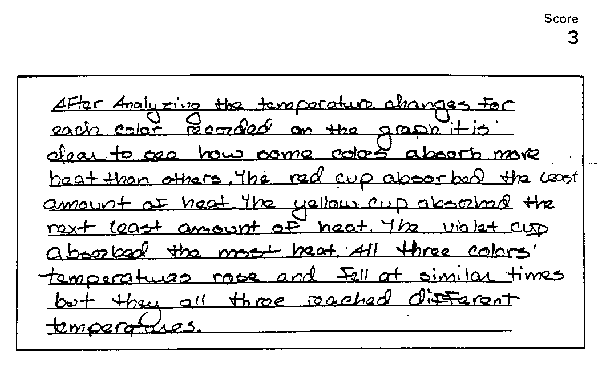 Score
3
After Analyzing the temperature changes for
each color recorded on the graph it is
clear to see how some colors absorb more
heat than others. The red cup absorbed the least
amount of heat. The yellow cup absorbed the
next least amount of heat. The violet cup
absorbed the most heat. All three colors'
temperatures rose and fell at similar times
but they all three reached different
temperatures.